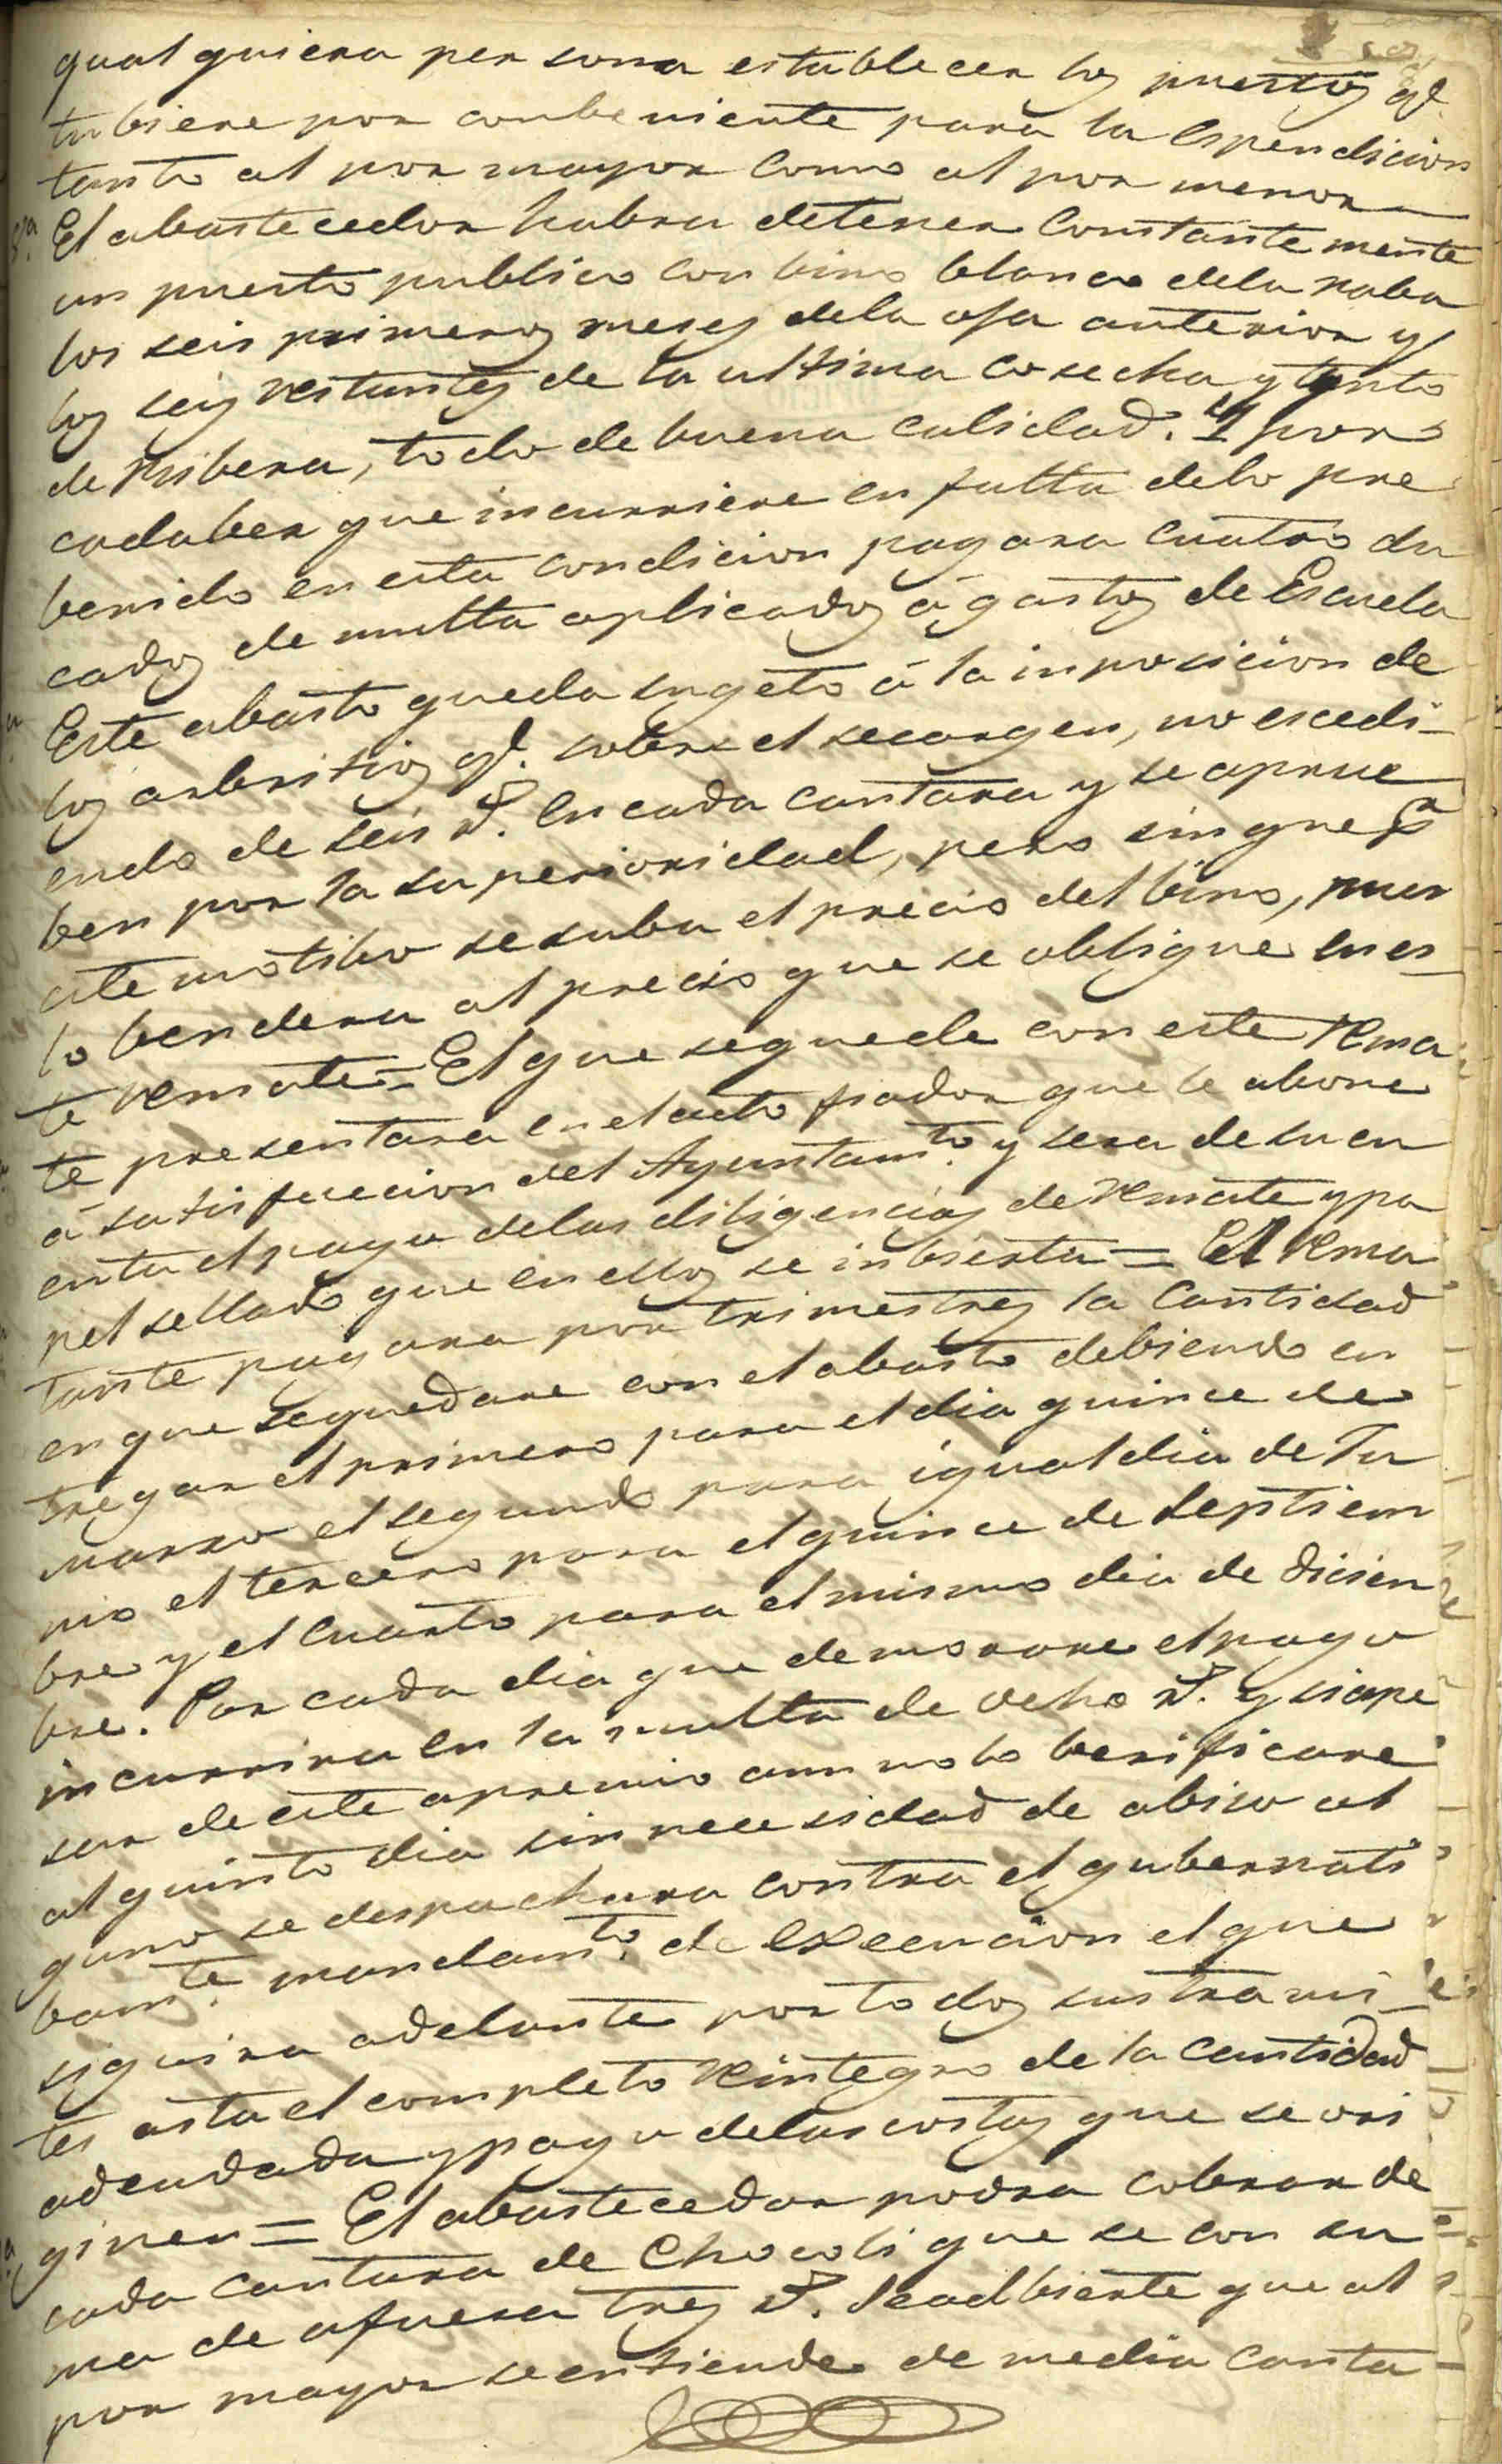 qualquiera persona establecer los puestos qe.
tubiere por conbeniente para la espendicion
tanto al por mayor como al por menor
3ra. El abastecedor habra detener Constantemente
un puesto publico con bino blanco dela naba
los seis primeros meses dela oja anterior y
los seis restantes de la ultima cosecha y tinto
de Ribera, todo de buena calidad. Y por
cadaber que incurriere en faltta delo pre
benido en esta condicion pagara cuatro du
cados de multta aplicados á gastos de Escuela
Este abasto queda sugeto á la inposicion de
los arbitrios qe. sobre el recargen, no escedi-
endo de seis rs. en cada cantara y se aprue
ben por la superioridad, pero sin que pr.
este motibo se suba el precio del bino, pues
lo bendera al precio que se obligue en es-
te remate = El que sequede con este rema
te presentara en el acto fiador que le abone
á satisfaccion del Ayuntamto. y sera de su cu
enta el pago delas diligencias de remate y pa
pel sellado que en ellas se inbierta = El rema
tante pagara por trimestres la Cantidad
en que sequedare con el abasto debiendo en
tregar el primero para el dia quince de
marzo el segundo para igual dia de Ju
nio el tercero para el quince de Septiem
bre y el Cuarto para el mismo dia de Dicien
bre. Por cada dia que demorare el pago
incurrira en la multta de ocho rs. y siape
sar de este apremio aun no lo berificare
al quinto dia sin necesidad de abiso al
guno se despachara contra el gubernati
bamte. mandamto. de execucion el que
siguira adelante por todos sus trami-
tes asta el completo reintegro de la cantidad
adeudada y pago delas costas que se ori
ginen = El abastecedor podra cobrar de
cada cantara de Chocoli que se con su
ma de afuera tres rs. Se adbierte que al
por mayor se entiende de media canta-